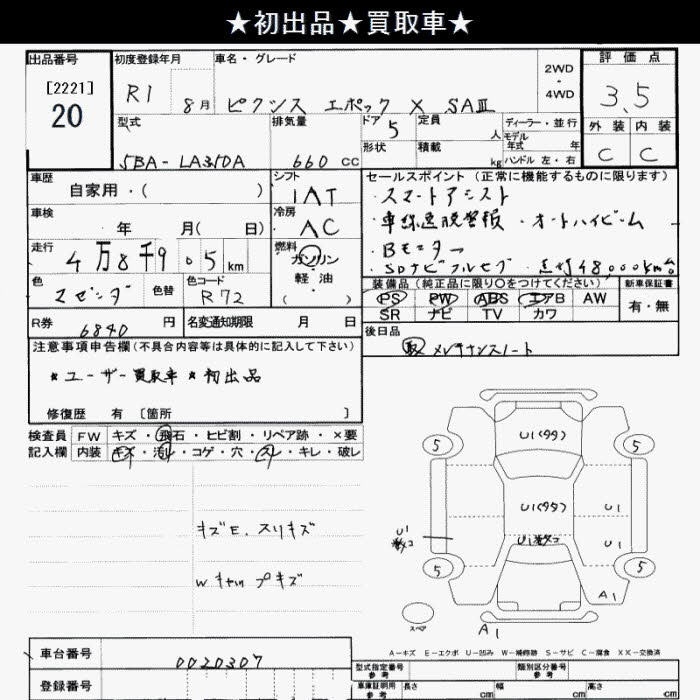 ★初出品★買取車★
出品番号 初度登録年月 車名・グレード 2WD・4WD 評価点
[2221]
20
R1 8月 ピクシス エポック X SAⅢ 3.5
型式 排気量 ドア 5 定員 人 ディーラー・並行 外装 内装
モデル年式 年
5BA-LA350A 660 cc 形状 積載 kg ハンドル 左・右 C C
車歴 シフト セールスポイント (正常に機能するものに限ります)
自家用・( ) IAT ・スマートアシスト
車検 冷房 ・車線逸脱警報 ・オートハイビーム
年 月( 日) AC ・Bモニター
走行 4万8千905km 燃料 ガソリン 軽油 ( )
・SDナビフルセグ ・走行48,000km台
色 色替 色コード 装備品 (純正品に限り○をつけてください) 新車保証書
マゼンダ R72 PS PW ABS エアB AW 有・無
SR ナビ TV カワ
R券 6840 円 名変通知期限 月 日
後日品
取 メンテナンスノート
注意事項申告欄 (不具合内容等は具体的に記入して下さい)
★ユーザー買取車★初出品
修復歴 有 [箇所 ]
検査員 FW キズ・飛石・ヒビ割・リペア跡・×要
記入欄 内装 キズ・汚れ・コゲ・穴・スレ・キレ・破レ
キズE、スリキズ
Wキャップキズ
5 U1(99) 5
U1(99) U1
U1数コ U1数コ U1
5 5
A1
スペア A1
A-キズ E-エクボ U-凹み W-補修跡 S-サビ C-腐食 XX-交換済
車台番号 0020307
登録番号
型式指定番号 参考 類別区分番号 参考
車庫証明用 参考 長さ cm 幅 cm 高さ cm